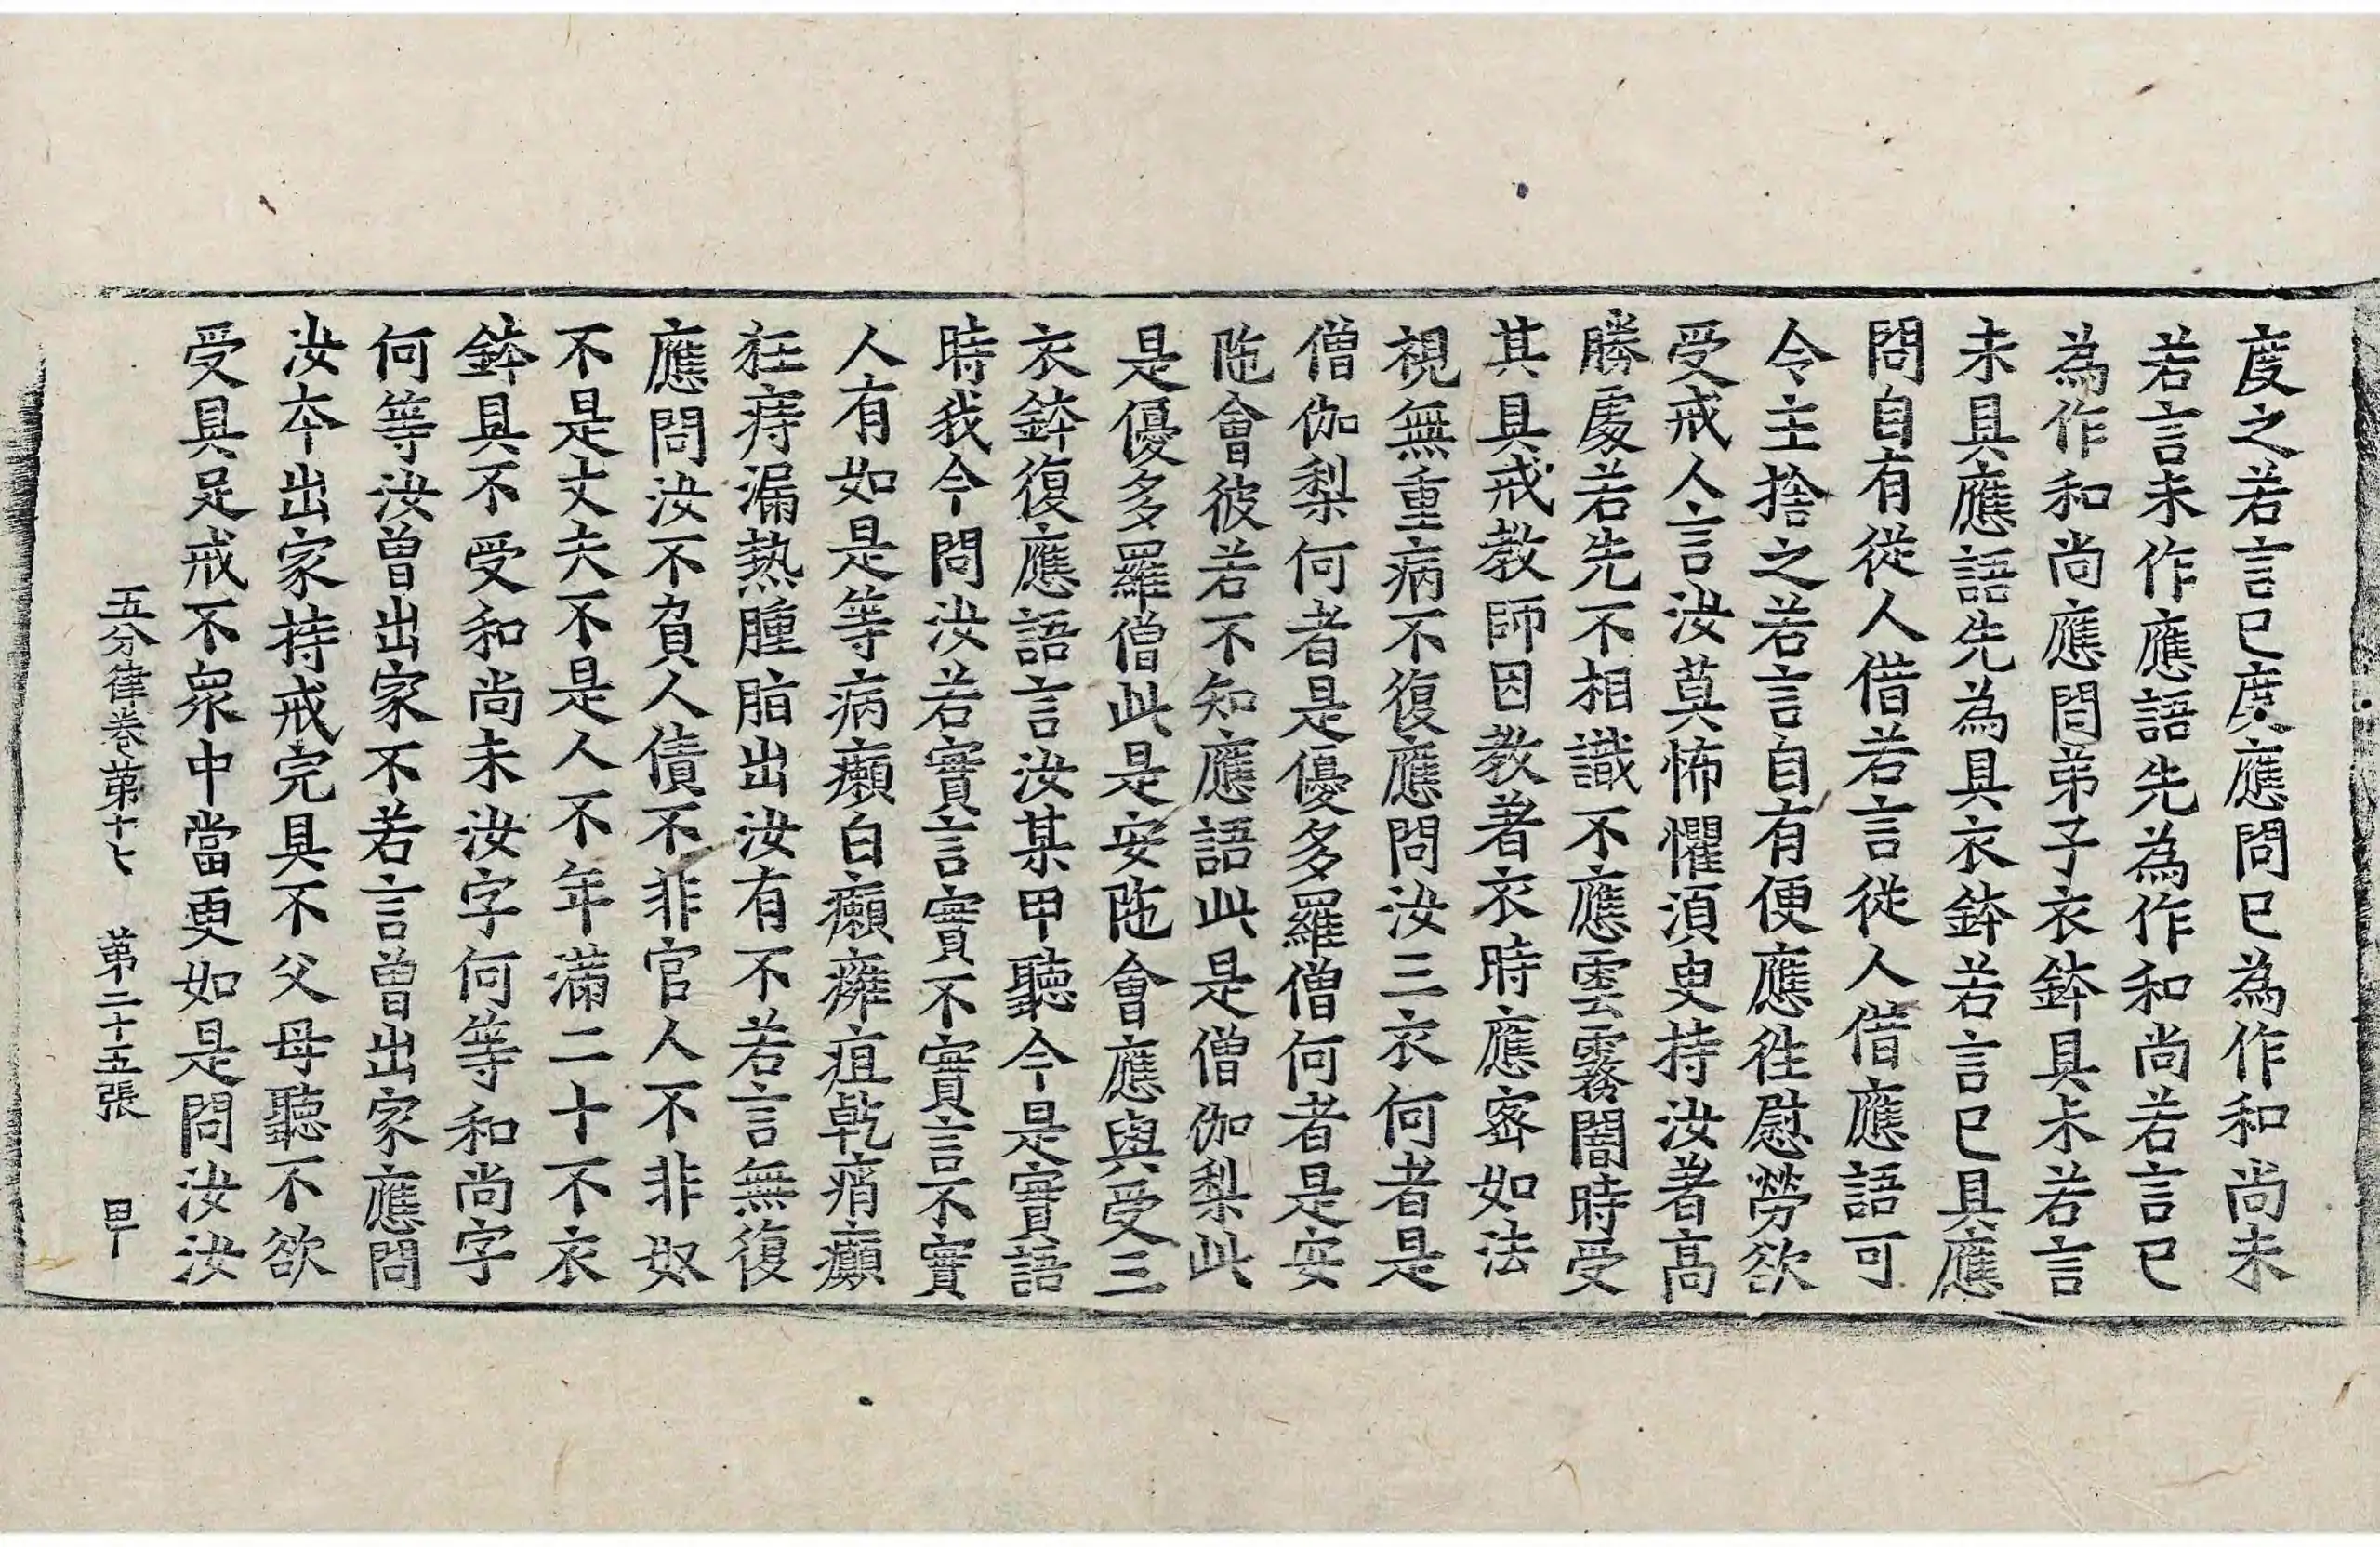 度之若言已度應問已為作和尚未
若言未作應語先為作和尚若言已
為作和尚應問弟子衣鉢具未若言
未具應語先為具衣鉢若言已具應
問自有從人借若言從人借應語可
令主捨之若言自有便應往慰勞欲
受戒人言汝莫怖懼須臾持汝著高
勝處若先不相識不應雲霧闇時受
其具戒教師因教著衣時應密如法
視無重病不復應問汝三衣何者是
僧伽梨何者是優多羅僧何者是安
陁會彼若不知應語此是僧伽梨此
是優多羅僧此是安陁會應與受三
衣鉢復應語言汝某甲聽今是實語
時我今問汝若實言實不實言不實
人有如是等病癩白癩癰疽乾痟癲
狂痔漏熱腫脂出汝有不若言無復
應問汝不負人債不非官人不非奴
不是丈夫不是人不年滿二十不衣
鉢具不受和尚未汝字何等和尚字
何等汝曾出家不若言曾出家應問
汝本出家持戒完具不父母聽不欲
受具足戒不衆中當更如是問汝汝
五分律卷第十七 第二十五張 甲